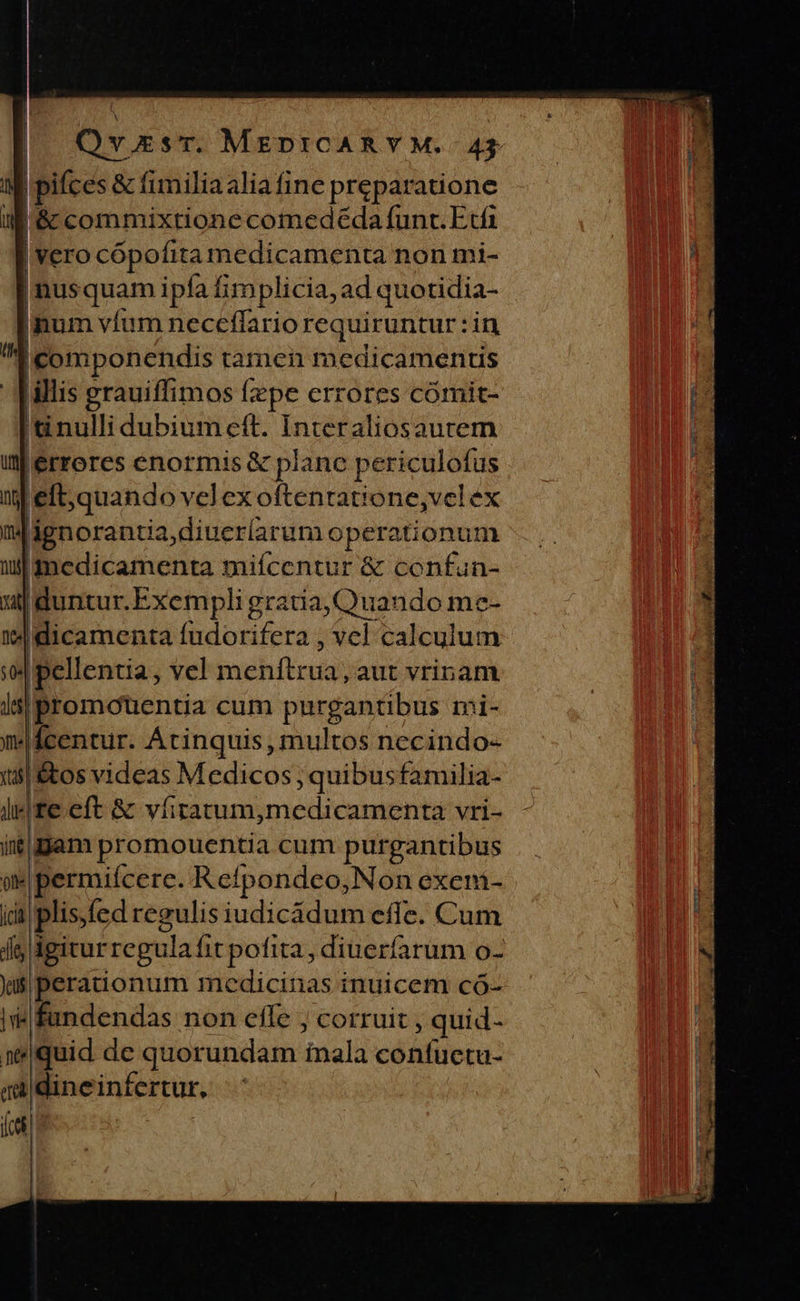 QvÆST. MEDICARVM. 43
piſces & ſimilia alia ſine preparatione
& commixtione comedēda ſunt. Etſi
vero cōpoſita medicamenta non mi-
nus quam ipſa ſimplicia, ad quotidia-
num vſum neceſſario requiruntur: in
componendis tamen medicamentis
illis grauiſſimos ſæpe errores cōmit-
ti nulli dubium eſt. Inter alios autem
errores enormis & plane periculoſus
eſt, quando vel ex oſtentatione, vel ex
ignorantia, diuerſarum operationum
medicamenta miſcentur & confun-
duntur. Exempli gratia, Quando me-
dicamenta ſudorifera, vel calculum
pellentia, vel menſtrua, aut vrinam
promouentia cum purgantibus mi-
ſcentur. At inquis, multos nec indo-
ctos videas Medicos, quibus familia-
re eſt & vſitatum, medicamenta vri-
nam promouentia cum purgantibus
permiſcere. Reſpondeo, Non exem-
plis, ſed regulis iudicādum eſſe. Cum
igitur regula ſit poſita, diuerſarum o-
perationum medicinas inuicem cō-
fundendas non eſſe, corruit, quid-
quid de quorundam mala conſuetu-
dine infertur.